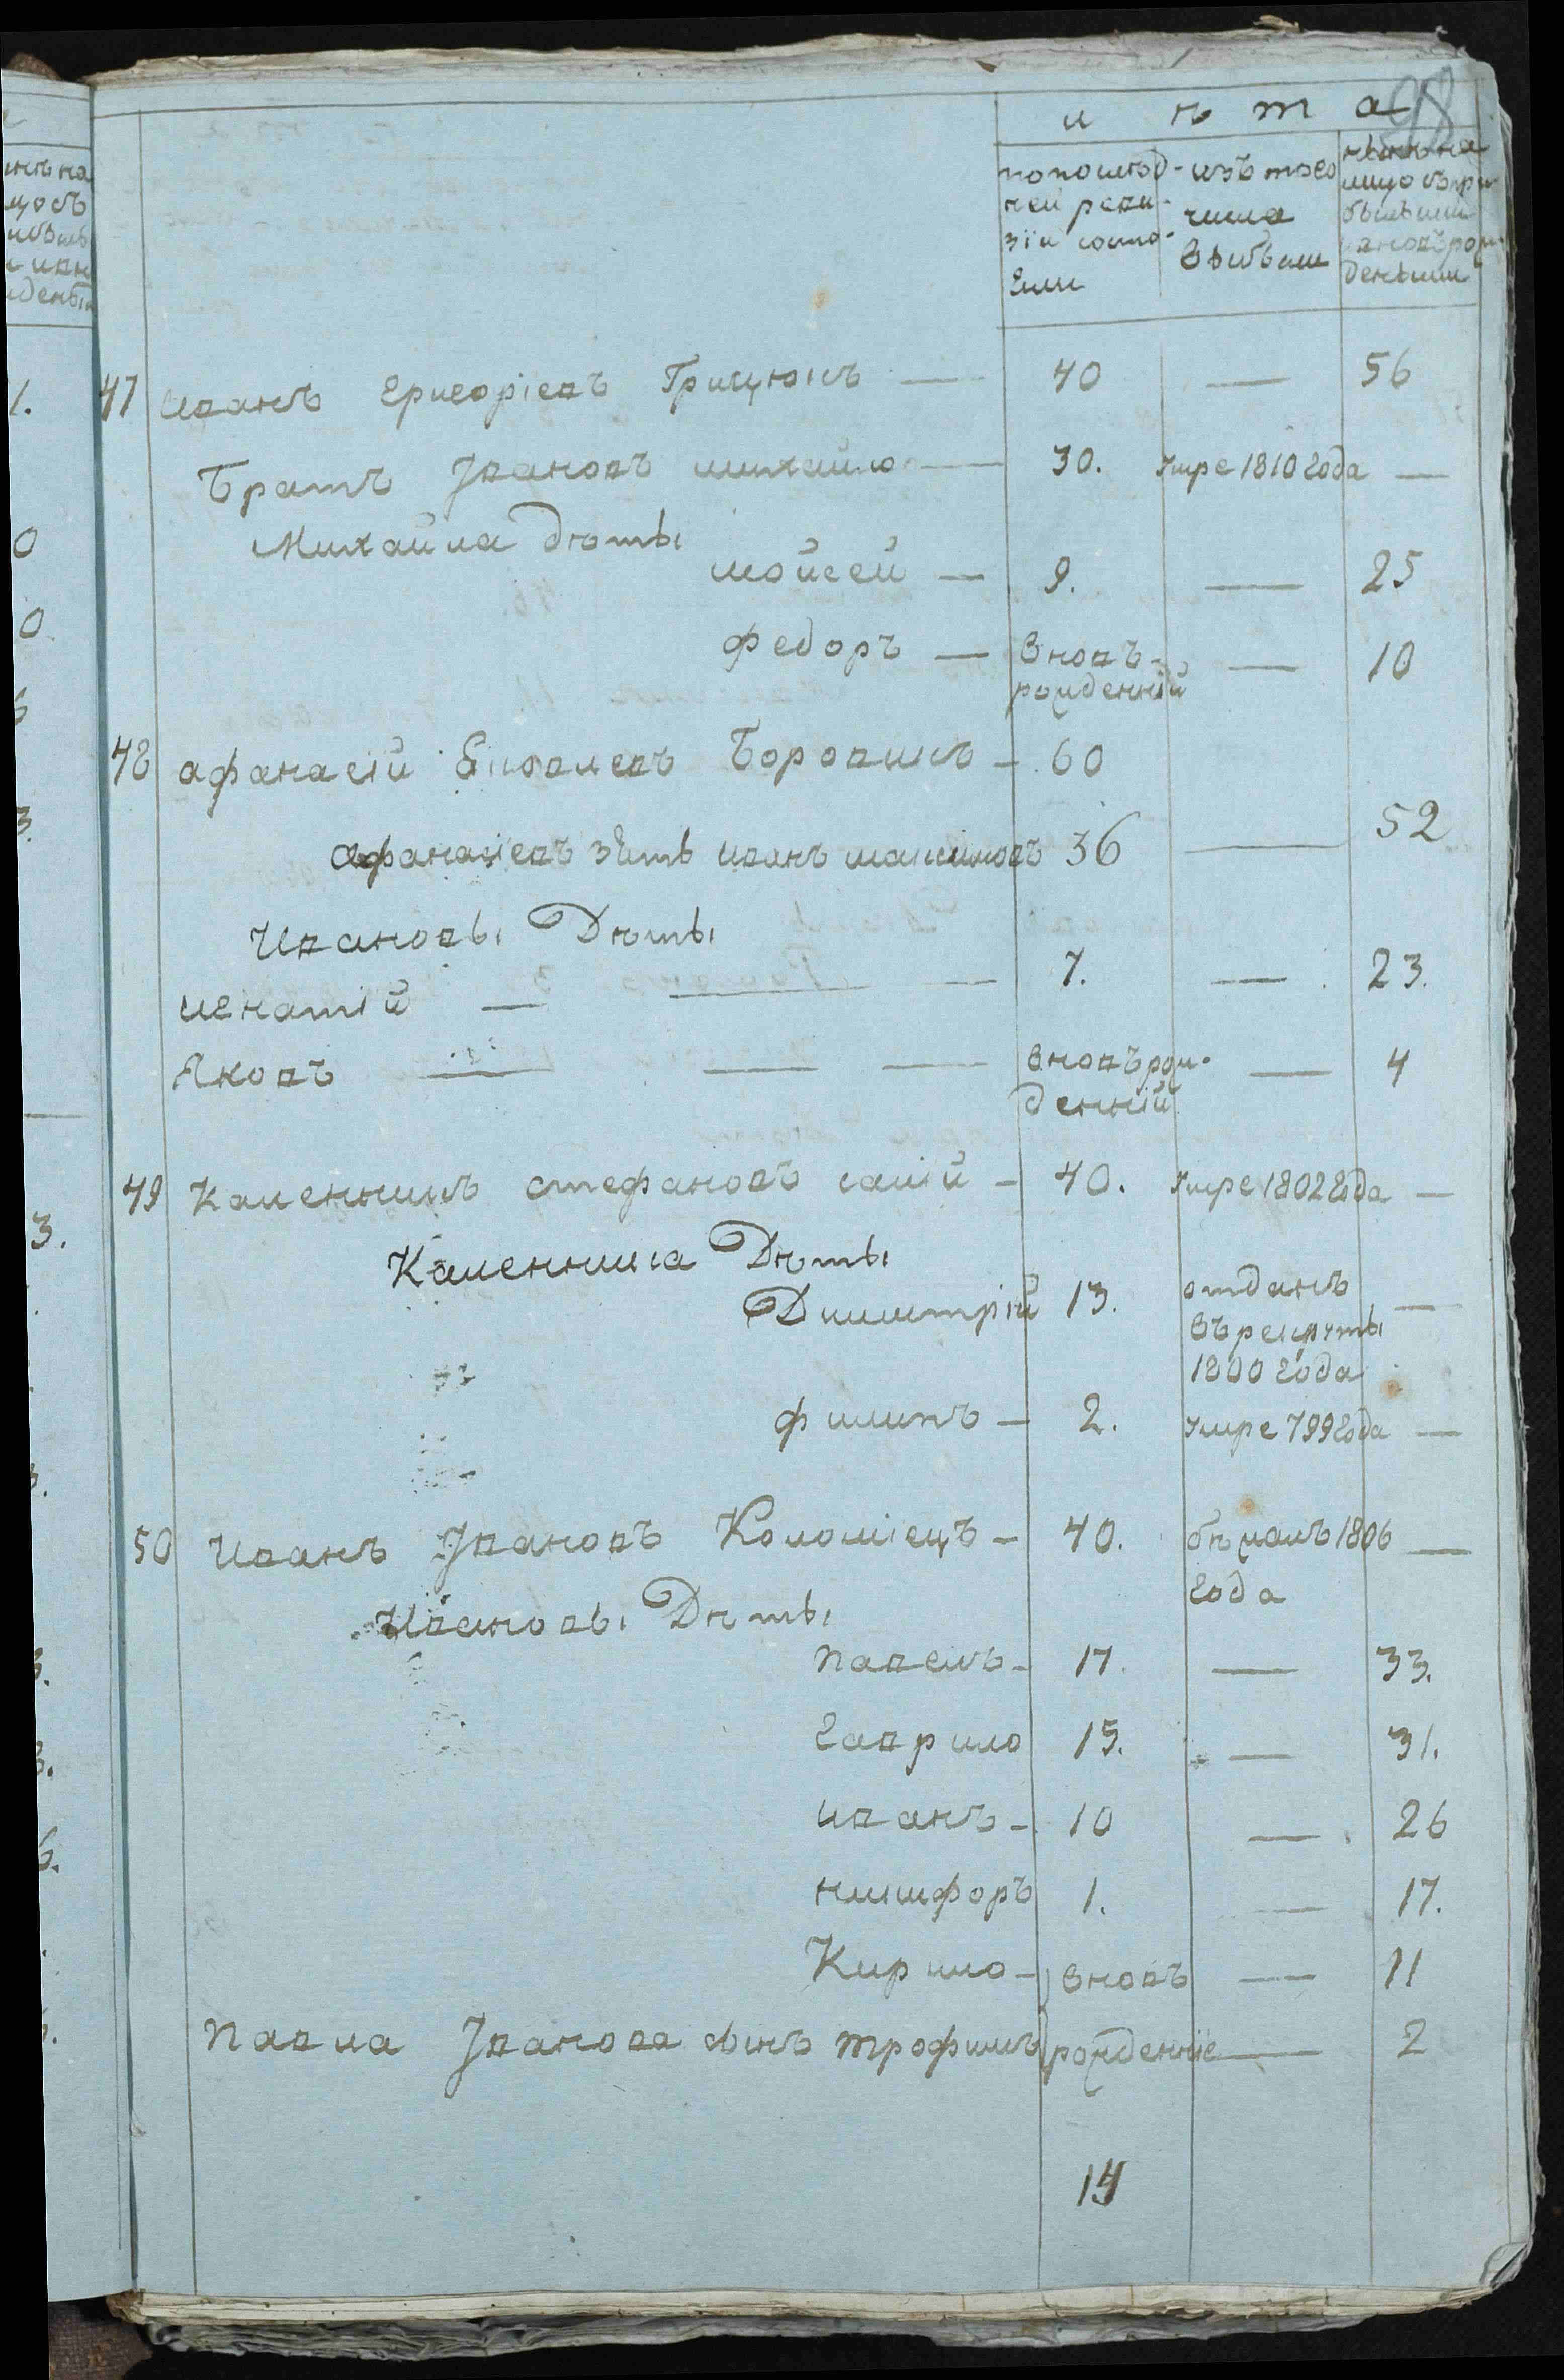 98
и ѣ т а
попослѣд-
ней реви-
зіи состо-
яли
изъ того
числа
выбыли
нынѣ на
лицо съ при
былыми
и новорож-
денными
47 Иванъ Григоріевъ Грицюкъ — 40 — 56
Братъ Ивановъ михайло — 30. умре 1810 года —
Михайла дѣты
мойсей — 9. — 25
Федоръ — вновъ- — 10
рожденній
48 афанасій Яковлевъ Боровикъ — 60
афанасіевъ зять иванъ максимовъ 36 — 52
Ивановы Дѣты
игнатій — 7. — 23.
Яковъ — вновъ рож- — 4
денній
49 Каленникъ стефановъ — 40. умре 1802 года —
Каленника Дѣты
Димитрій 13. отданъ —
въ рекруты
1800 года
филипъ — 2. умре 799 года —
50 Иванъ Ивановъ Коломіецъ — 40. бѣжалъ 1806 —
года
Ивановы Дѣты
павелъ — 17. — 33.
гаврило 15. — 31.
иванъ — 10 — 26
никифоръ 1. — 17.
Кирило — вновъ — 11
павла Иванова сынъ трофимъ рожденніе — 2
14